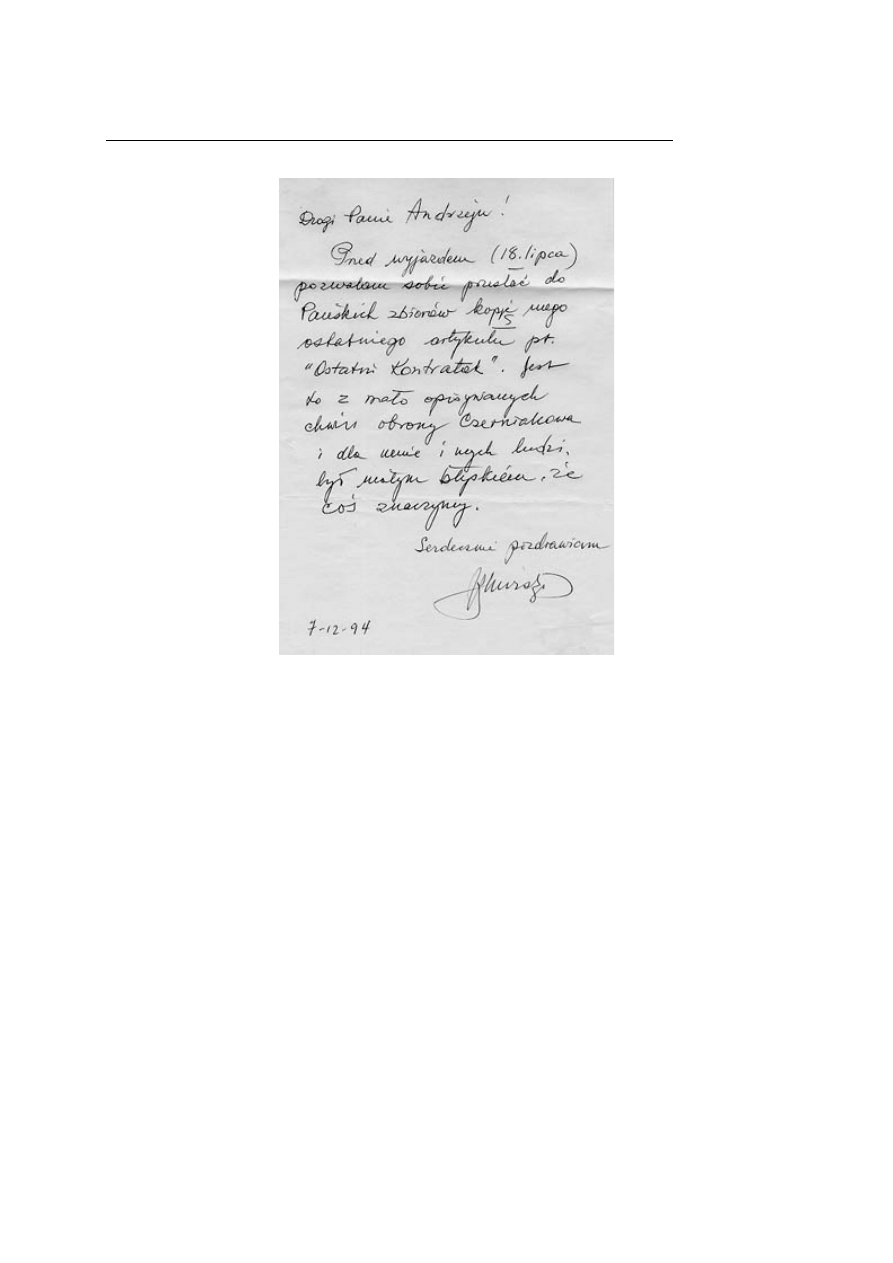 Drogi Panie Andrzeju!
Przed wyjazdem (18. lipca)
pozwalam sobie przesłać do
Pańskich zbiorów kopję mego
ostatniego artykułu pt.
"Ostatni Kontratak". Jest
to z mało opisywanych
chwil obrony Czerniakowa
i dla mnie i mych ludzi,
był małym błyskiem, że
coś znaczymy.
Serdecznie pozdrawiam
7-12-94